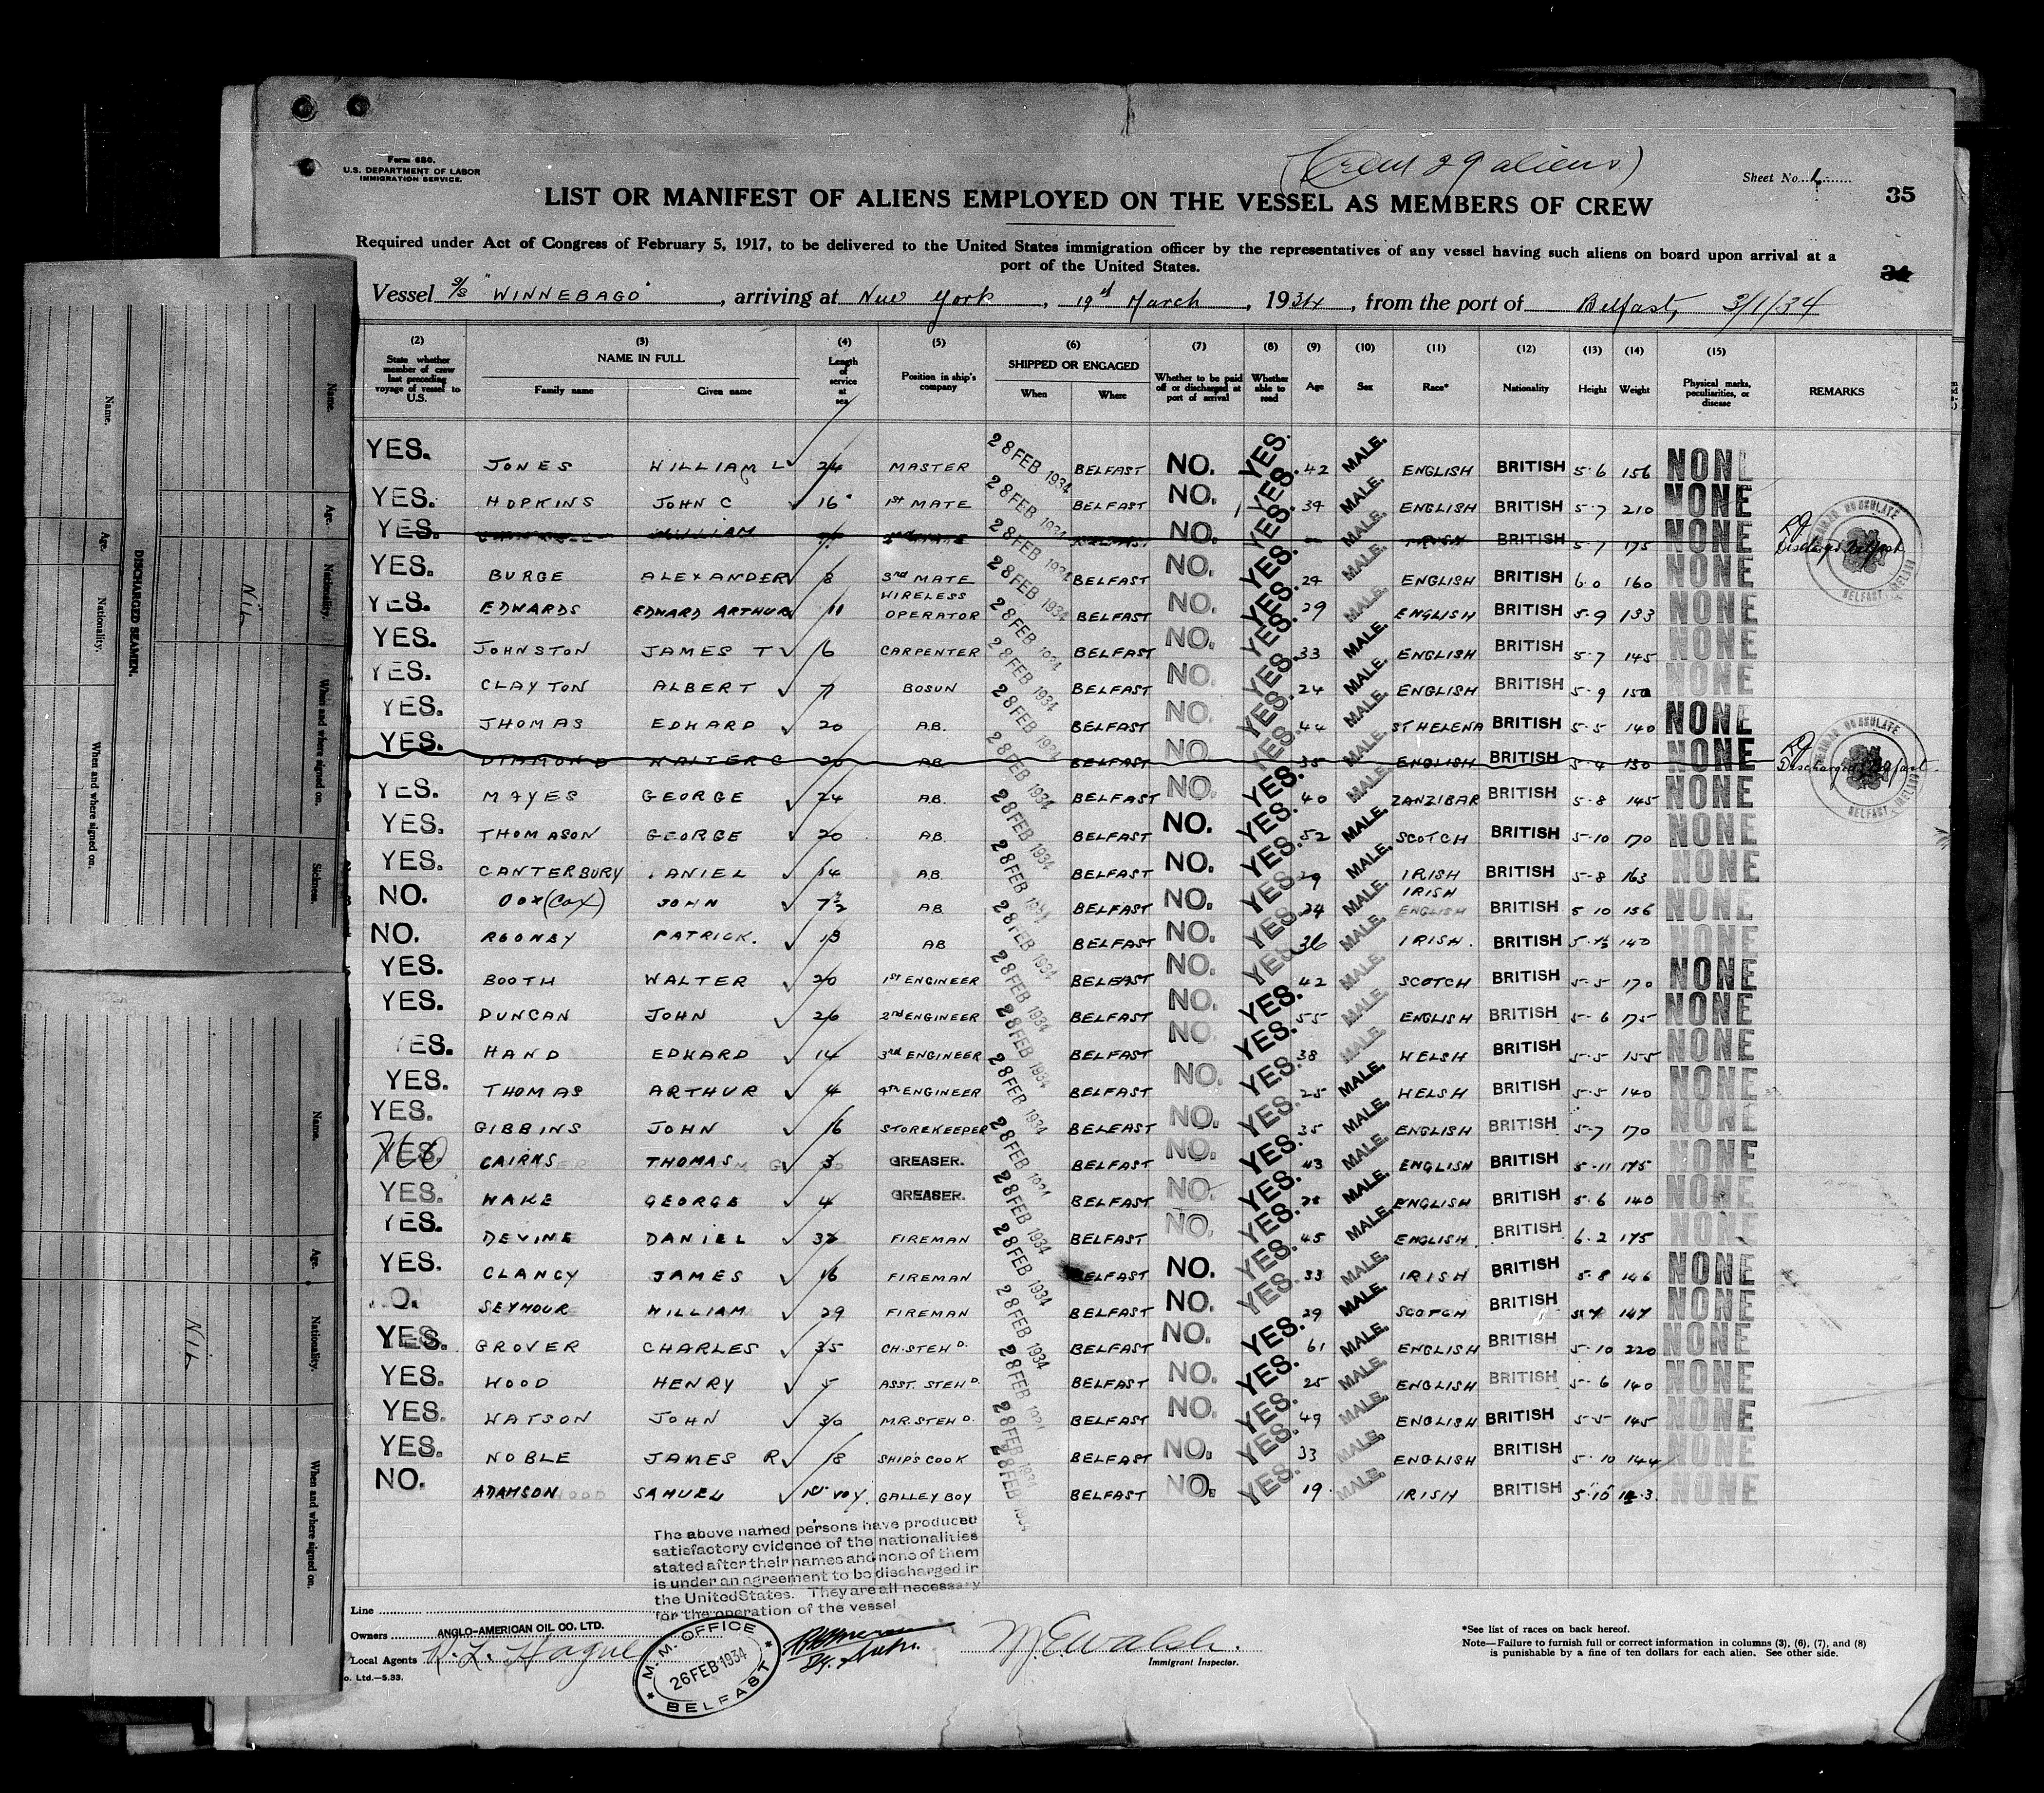 Form 680.
U.S. DEPARTMENT OF LABOR
IMMIGRATION SERVICE.
(Crew 29 aliens)
Sheet No.
35
LIST OR MANIFEST OF ALIENS EMPLOYED ON THE VESSEL AS MEMBERS OF CREW
Required under Act of Congress of February 5, 1917, to be delivered to the United States immigration officer by the representatives of any vessel having such aliens on board upon arrival at a
port of the United States.
34
Vessel S/S "WINNEBAGO", arriving at New York, 19th March, 1934, from the port of Belfast, 3/1/34
(2) (3) (4) (5) (6) (7) (8) (9) (10) (11) (12) (13) (14) (15)
State whether member of crew last preceding voyage of vessel to U.S. NAME IN FULL Family name Given name Length of service at sea Position in ship's company SHIPPED OR ENGAGED When Where Whether to be paid off or discharged at port of arrival Whether able to read Age Sex Race* Nationality Height Weight Physical marks, peculiarities, or disease REMARKS
YES. JONES WILLIAM L 24 MASTER 28 FEB 1934 BELFAST NO. YES. 42 MALE. ENGLISH BRITISH 5·6 156 NONE
YES. HOPKINS JOHN C 16 1st MATE 28 FEB 1934 BELFAST NO. YES. 39 MALE. ENGLISH BRITISH 5·7 210 NONE
YES. WILLIAM NO. YES. MALE. IRISH BRITISH 5·7 175 NONE Discharged Belfast
YES. BURGE ALEXANDER 8 3rd MATE 28 FEB 1934 BELFAST NO. YES. 29 MALE. ENGLISH BRITISH 6·0 160 NONE
YES. EDWARDS EDWARD ARTHUR 11 WIRELESS OPERATOR 28 FEB 1934 BELFAST NO. YES. 29 MALE. ENGLISH BRITISH 5·9 133 NONE
YES. JOHNSTON JAMES T 6 CARPENTER 28 FEB 1934 BELFAST NO. YES. 33 MALE. ENGLISH BRITISH 5·7 145 NONE
YES. CLAYTON ALBERT 7 BOSUN 28 FEB 1934 BELFAST NO. YES. 24 MALE. ENGLISH BRITISH 5·9 150 NONE
YES. THOMAS EDWARD 20 A.B. 28 FEB 1934 BELFAST NO. YES. 44 MALE. ST HELENA BRITISH 5·5 140 NONE
YES. DIAMOND WALTER C 20 A.B. 28 FEB 1934 BELFAST NO. YES. 35 MALE. ENGLISH BRITISH 5·4 130 NONE Discharged Belfast.
YES. MAYES GEORGE 24 A.B. 28 FEB 1934 BELFAST NO. YES. 40 MALE. ZANZIBAR BRITISH 5·8 145 NONE
YES. THOMASON GEORGE 20 A.B. 28 FEB 1934 BELFAST NO. YES. 52 MALE. SCOTCH BRITISH 5·10 170 NONE
YES. CANTERBURY ANIEL 14 A.B. 28 FEB 1934 BELFAST NO. YES. MALE. IRISH BRITISH 5·8 163 NONE
NO. (Cox) JOHN 7½ A.B. 28 FEB 1934 BELFAST NO. YES. 34 MALE. IRISH ENGLISH BRITISH 5 10 156 NONE
NO. PATRICK. 13 AB 28 FEB 1934 BELFAST NO. YES. 36 MALE. IRISH. BRITISH 140 NONE
YES. BOOTH WALTER 20 1st ENGINEER 28 FEB 1934 BELFAST NO. YES. 42 MALE. SCOTCH BRITISH 5·5 170 NONE
YES. DUNCAN JOHN 26 2nd ENGINEER 28 FEB 1934 BELFAST NO. YES. 55 MALE. ENGLISH BRITISH 5·6 175 NONE
YES. HAND EDWARD 14 3rd ENGINEER 28 FEB 1934 BELFAST NO. YES. 38 MALE. WELSH BRITISH 5·5 155 NONE
YES. THOMAS ARTHUR 4 4th ENGINEER 28 FEB 1934 BELFAST NO. YES. 25 MALE. WELSH BRITISH 5·5 140 NONE
YES. GIBBINS JOHN 16 STOREKEEPER 28 FEB 1934 BELFAST NO. YES. 35 MALE. ENGLISH BRITISH 5·7 170 NONE
YES. CAIRNS THOMAS 30 GREASER. 28 FEB 1934 BELFAST NO. YES. 43 MALE. ENGLISH BRITISH 5·11 175 NONE
YES. WAKE GEORGE 4 GREASER. 28 FEB 1934 BELFAST NO. YES. 28 MALE. ENGLISH BRITISH 5·6 140 NONE
YES. DEVINE DANIEL FIREMAN 28 FEB 1934 BELFAST NO. YES. 45 MALE. ENGLISH. BRITISH 6·2 175 NONE
YES. CLANCY JAMES 16 FIREMAN 28 FEB 1934 BELFAST NO. YES. 33 MALE. IRISH BRITISH 5·8 146 NONE
NO. SEYMOUR WILLIAM 29 FIREMAN 28 FEB 1934 BELFAST NO. YES. 29 MALE. SCOTCH BRITISH 147 NONE
YES. GROVER CHARLES 35 CH. STEWD. 28 FEB 1934 BELFAST NO. YES. 61 MALE. ENGLISH BRITISH 5·10 220 NONE
YES. WOOD HENRY 5 ASST. STEWD. 28 FEB 1934 BELFAST NO. YES. 25 MALE. ENGLISH BRITISH 5·6 140 NONE
YES. WATSON JOHN 30 M.R. STEWD. 28 FEB 1934 BELFAST NO. YES. 49 MALE. ENGLISH BRITISH 5·5 145 NONE
YES. NOBLE JAMES R 18 SHIP'S COOK 28 FEB 1934 BELFAST NO. YES. 33 MALE. ENGLISH BRITISH 5·10 144 NONE
NO. ADAMSON SAMUEL 1st VOY. GALLEY BOY BELFAST NO. YES. 19 MALE. IRISH BRITISH NONE
The above named persons have produced
satisfactory evidence of the nationalities
stated after their names and none of them
is under an agreement to be discharged in
the United States. They are all necessary
for the operation of the vessel
Line
Owners ANGLO-AMERICAN OIL CO. LTD.
Local Agents R. L. Hague
o. Ltd.—5.33.
M. M. OFFICE
26 FEB 1934
BELFAST
M. E. Walsh.
Immigrant Inspector.
*See list of races on back hereof.
Note—Failure to furnish full or correct information in columns (3), (6), (7), and (8)
is punishable by a fine of ten dollars for each alien. See other side.
DISCHARGED SEAMEN.
Name. Age. Nationality. When and where signed on.
Name. Age. Nationality. When and where signed on. Sickness.
NIL
Name. Age. Nationality. When and where signed on.
NIL